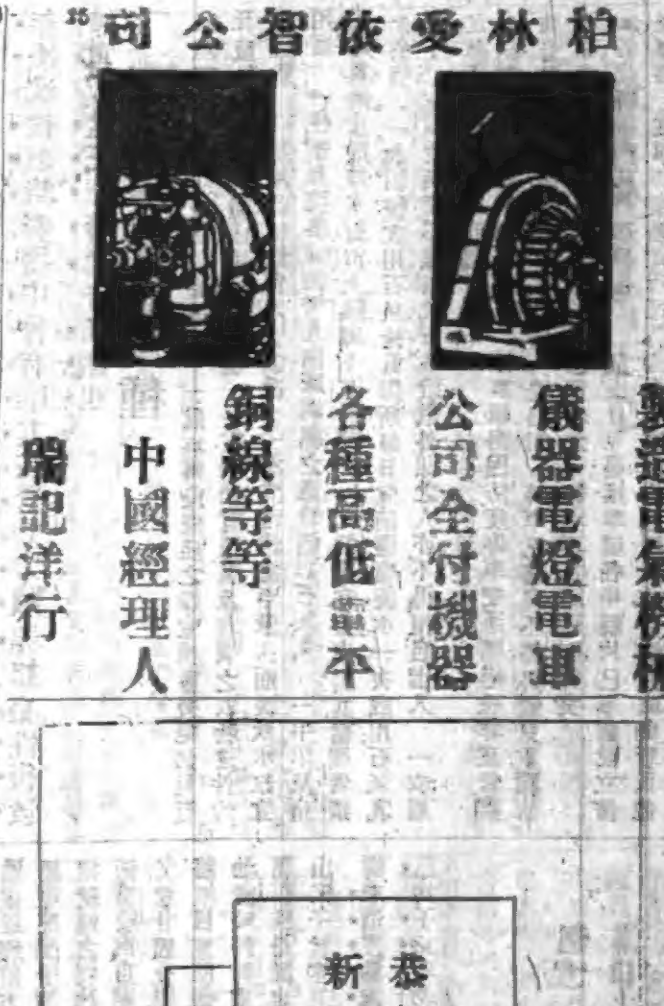 柏林愛依智公司
製造電氣機械
儀器電燈電車
公司全付機器
各種高低電平
銅線等等
中國經理人
瑞記洋行
恭新